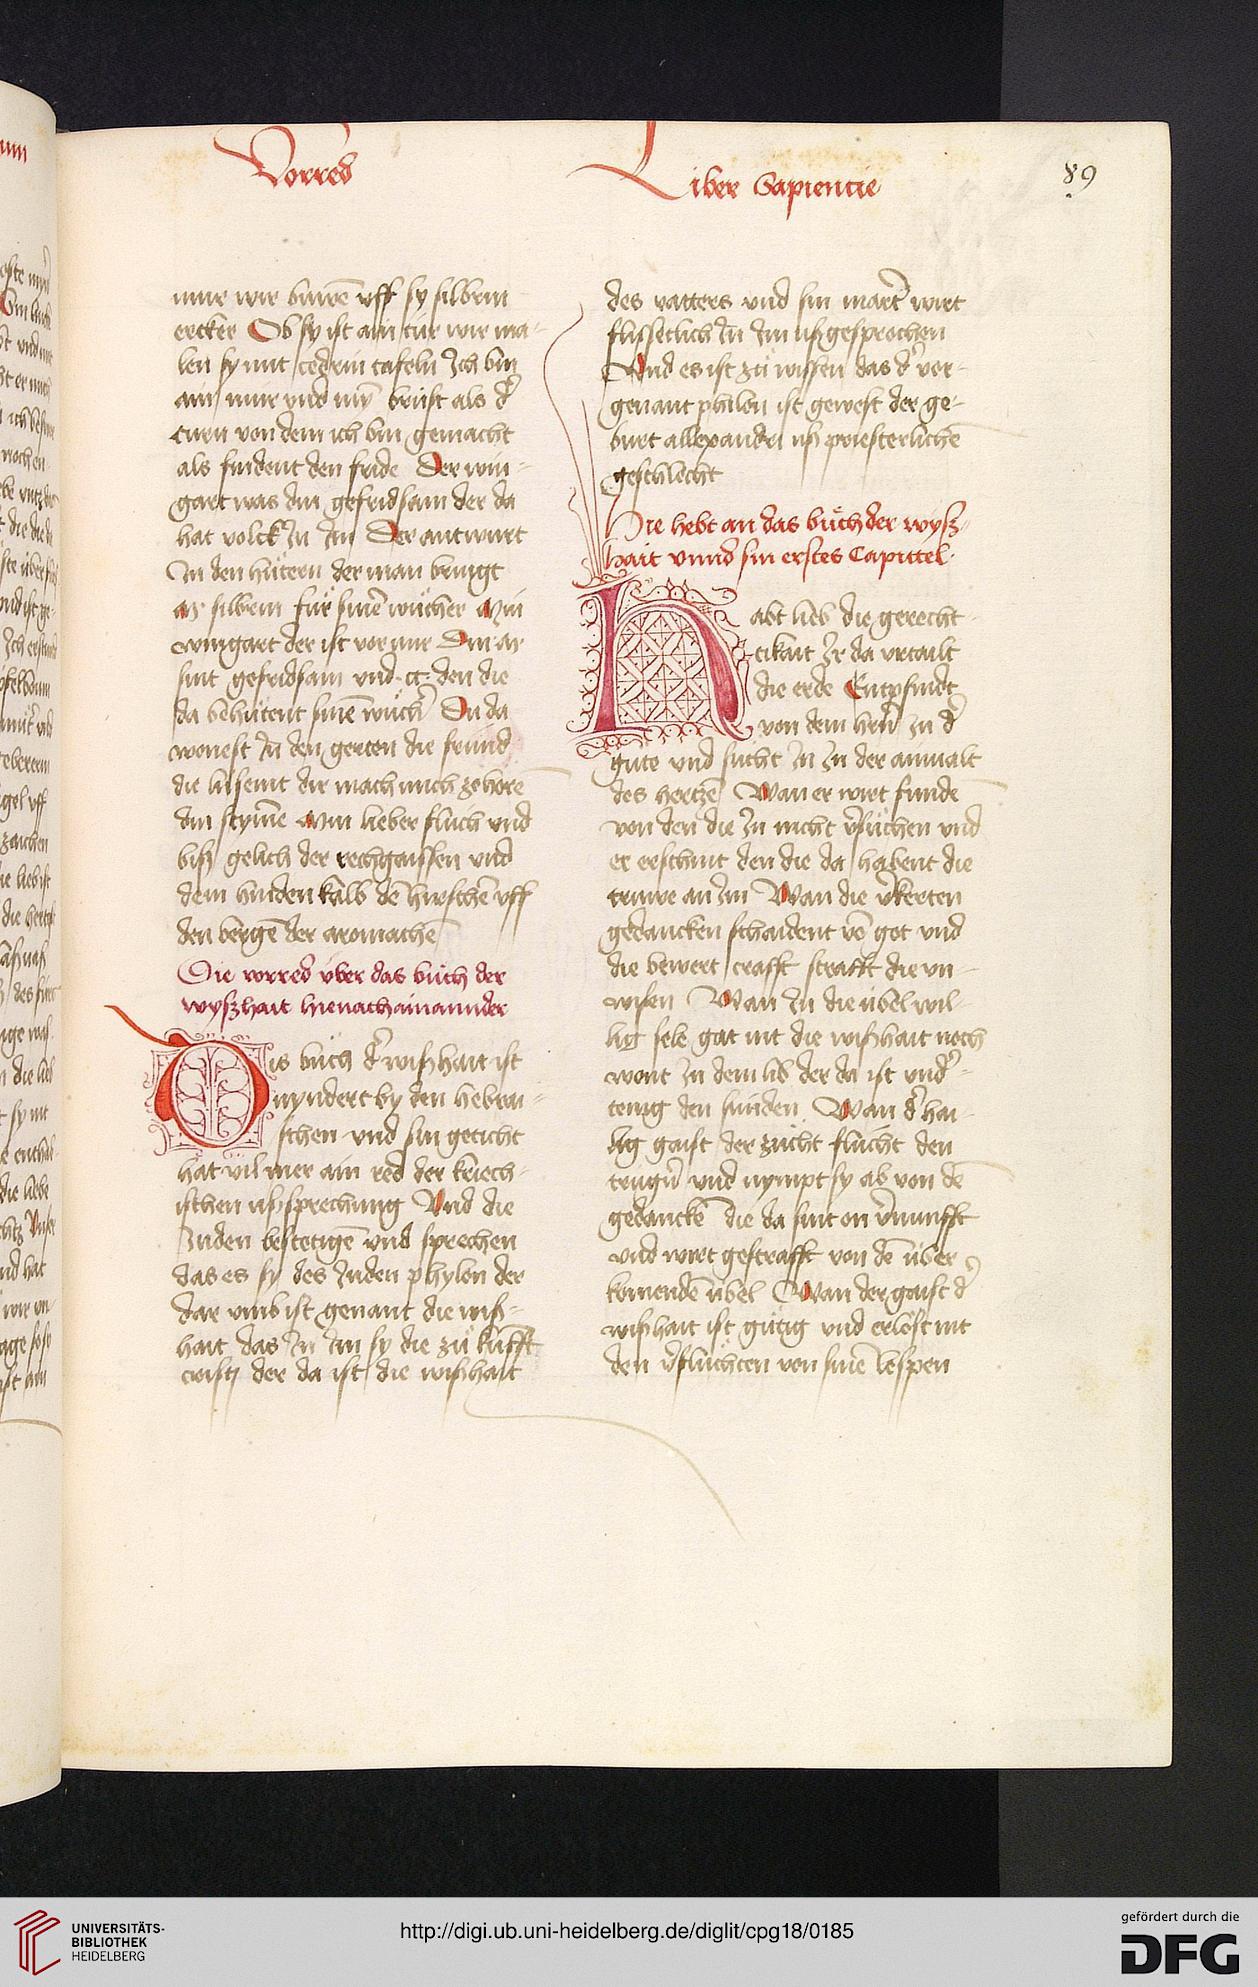 Vorred
Liber Sapiencie
89
mur wir buwē uff sy silbrin
ercker Ob sy ist ain túr wir ma-
len sy mit cedrin tafeln Ich bin
ain mur vnd mī brúst als dˀ
turn von dem ich bin gemacht
als findent den fride Der win-
gart was din gefridsam der da
hat volck In Im Der antwurt
In den hútern der man bringt
silbrin fúr sinē wůcher Min
wingart der ist vor mir Din
sint gefridsam vnd cc den die
da behútent sinē wůchˀ Du da
wonest In den gerten die frúnd
die lusemt dir mach mich zehorē
din stymē Min lieber flúch vnd
biß gelich der rechgaissen vnd
dem hinden kalb dē hirschē uff
den bergē der aromachē
Die vorred úber das bůch der
wyßhait hienach ainannder
Dis bůch dˀ wißhait ist
nyndert by den hebrai-
schen vnd sin geticht
hat vil mer ain red der kriech-
ischen ußsprechung Vnd die
Juden bestetigē vnd sprechen
das es sy des Juden phylon der
dar vmb ist genant die wiß-
hait das In Im sy die zů kunfft
cristi der da ist die wißhait
des vatters vnd sin martˀ wirt
flissetlich In Im ußgesprochen
Vnd es ist zů wissen das dˀ vor-
genant philon ist gewest der ge-
burt allexandri uß priesterlichē
geschlecht
Hie hebt an das bůch der wyß-
hait vnnd sin erstes Capittel.
Habt lieb die gerecht-
tikait Ir da vrtailt
die erde Entpfindt
von dem hrn̄ In dˀ
gúte vnd sůcht In In der ainualt
des hertzē Wan er wirt fundē
von den die In nicht vˀsůchen vnd
er erschint den die da habent die
trúwe an Im Wan die vˀkerten
gedancken schaident vō got vnd
die bewert crafft strafft die vn-
wisen Wan In die úbel wil-
lig sele gat nit die wißhait noch
wont In dem lib der da ist vndˀ-
tenig den súnden Wan dˀ hai-
lig gaist der zucht flúcht den
trugnˀ vnd nympt sy ab von dē
gedanckē die da sint on vˀnunfft
vnd wirt gestrafft von dē úber
komendē úbel Wan der gaist dˀ
wißhait ist gútig vnd erlóst nit
den vˀflůchten von sinē lefftzen
UNIVERSITÄTS-
BIBLIOTHEK
HEIDELBERG
http://digi.ub.uni-heidelberg.de/diglit/cpg18/0185
gefördert durch die
DFG